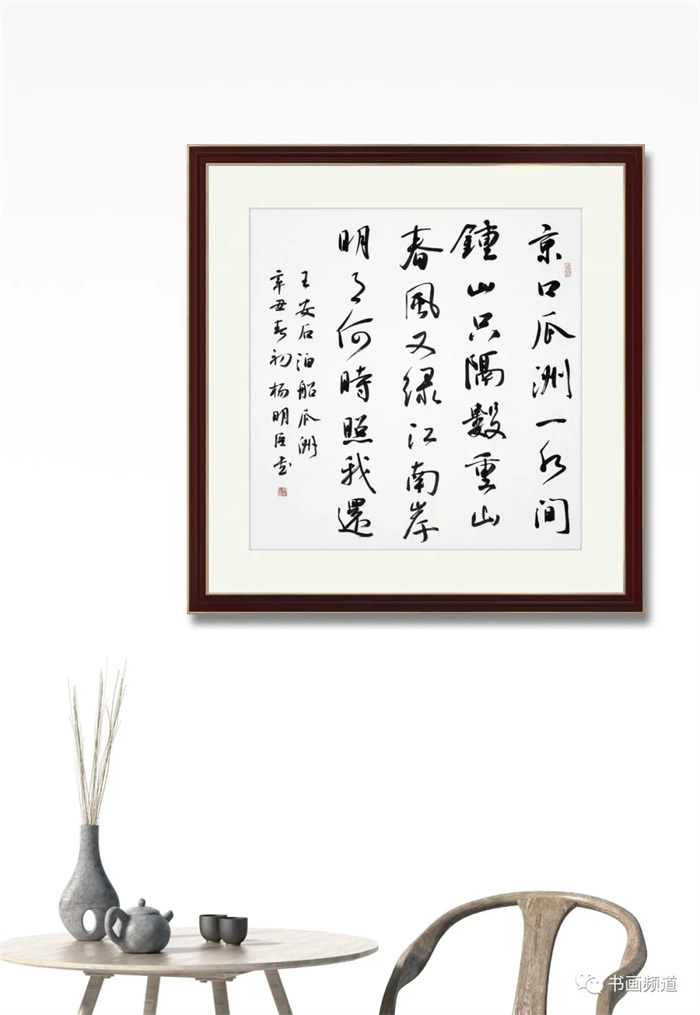 京口瓜洲一水间
鍾山只隔數重山
春風又绿江南岸
明月何時照我還
王安石泊船瓜洲
辛丑春初杨明臣书
书画频道